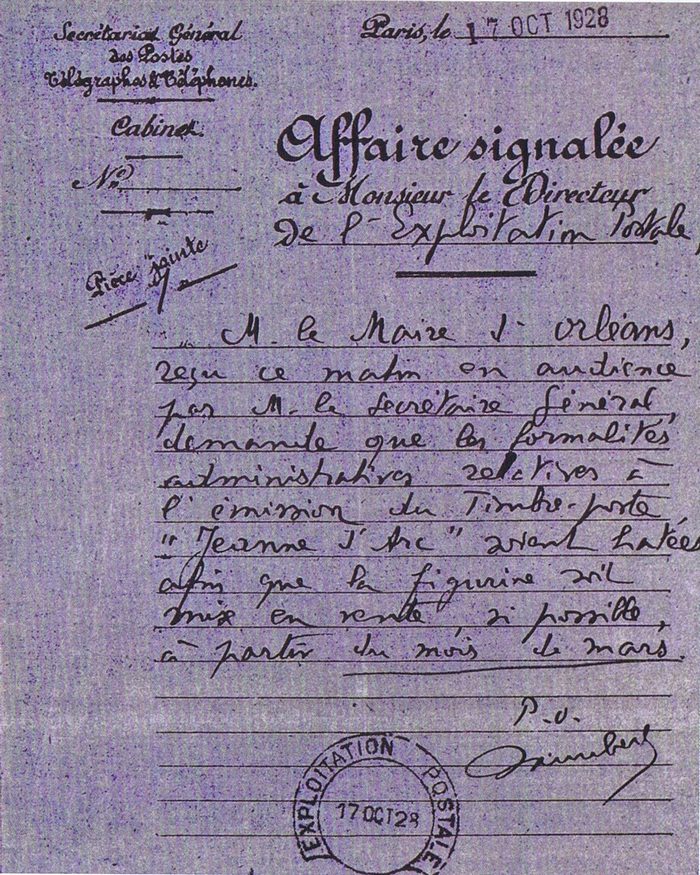 Secrétariat Général
des Postes
Télégraphes & Téléphones.
Cabinet.
Nº
Pièce jointe
Paris, le 17 OCT 1928
Affaire signalée
à Monsieur le Directeur
De l'Exploitation Postale,
M. le Maire d'Orléans,
reçu ce matin en audience
par M. le Secrétaire Général,
demande que les formalités
administratives relatives à
l'émission du Timbre-poste
"Jeanne d'Arc" soient hatées
afin que la figurine soit
mise en vente, si possible,
à partir du mois de mars.
P.O.
EXPLOITATION POSTALE
17 OCT 28